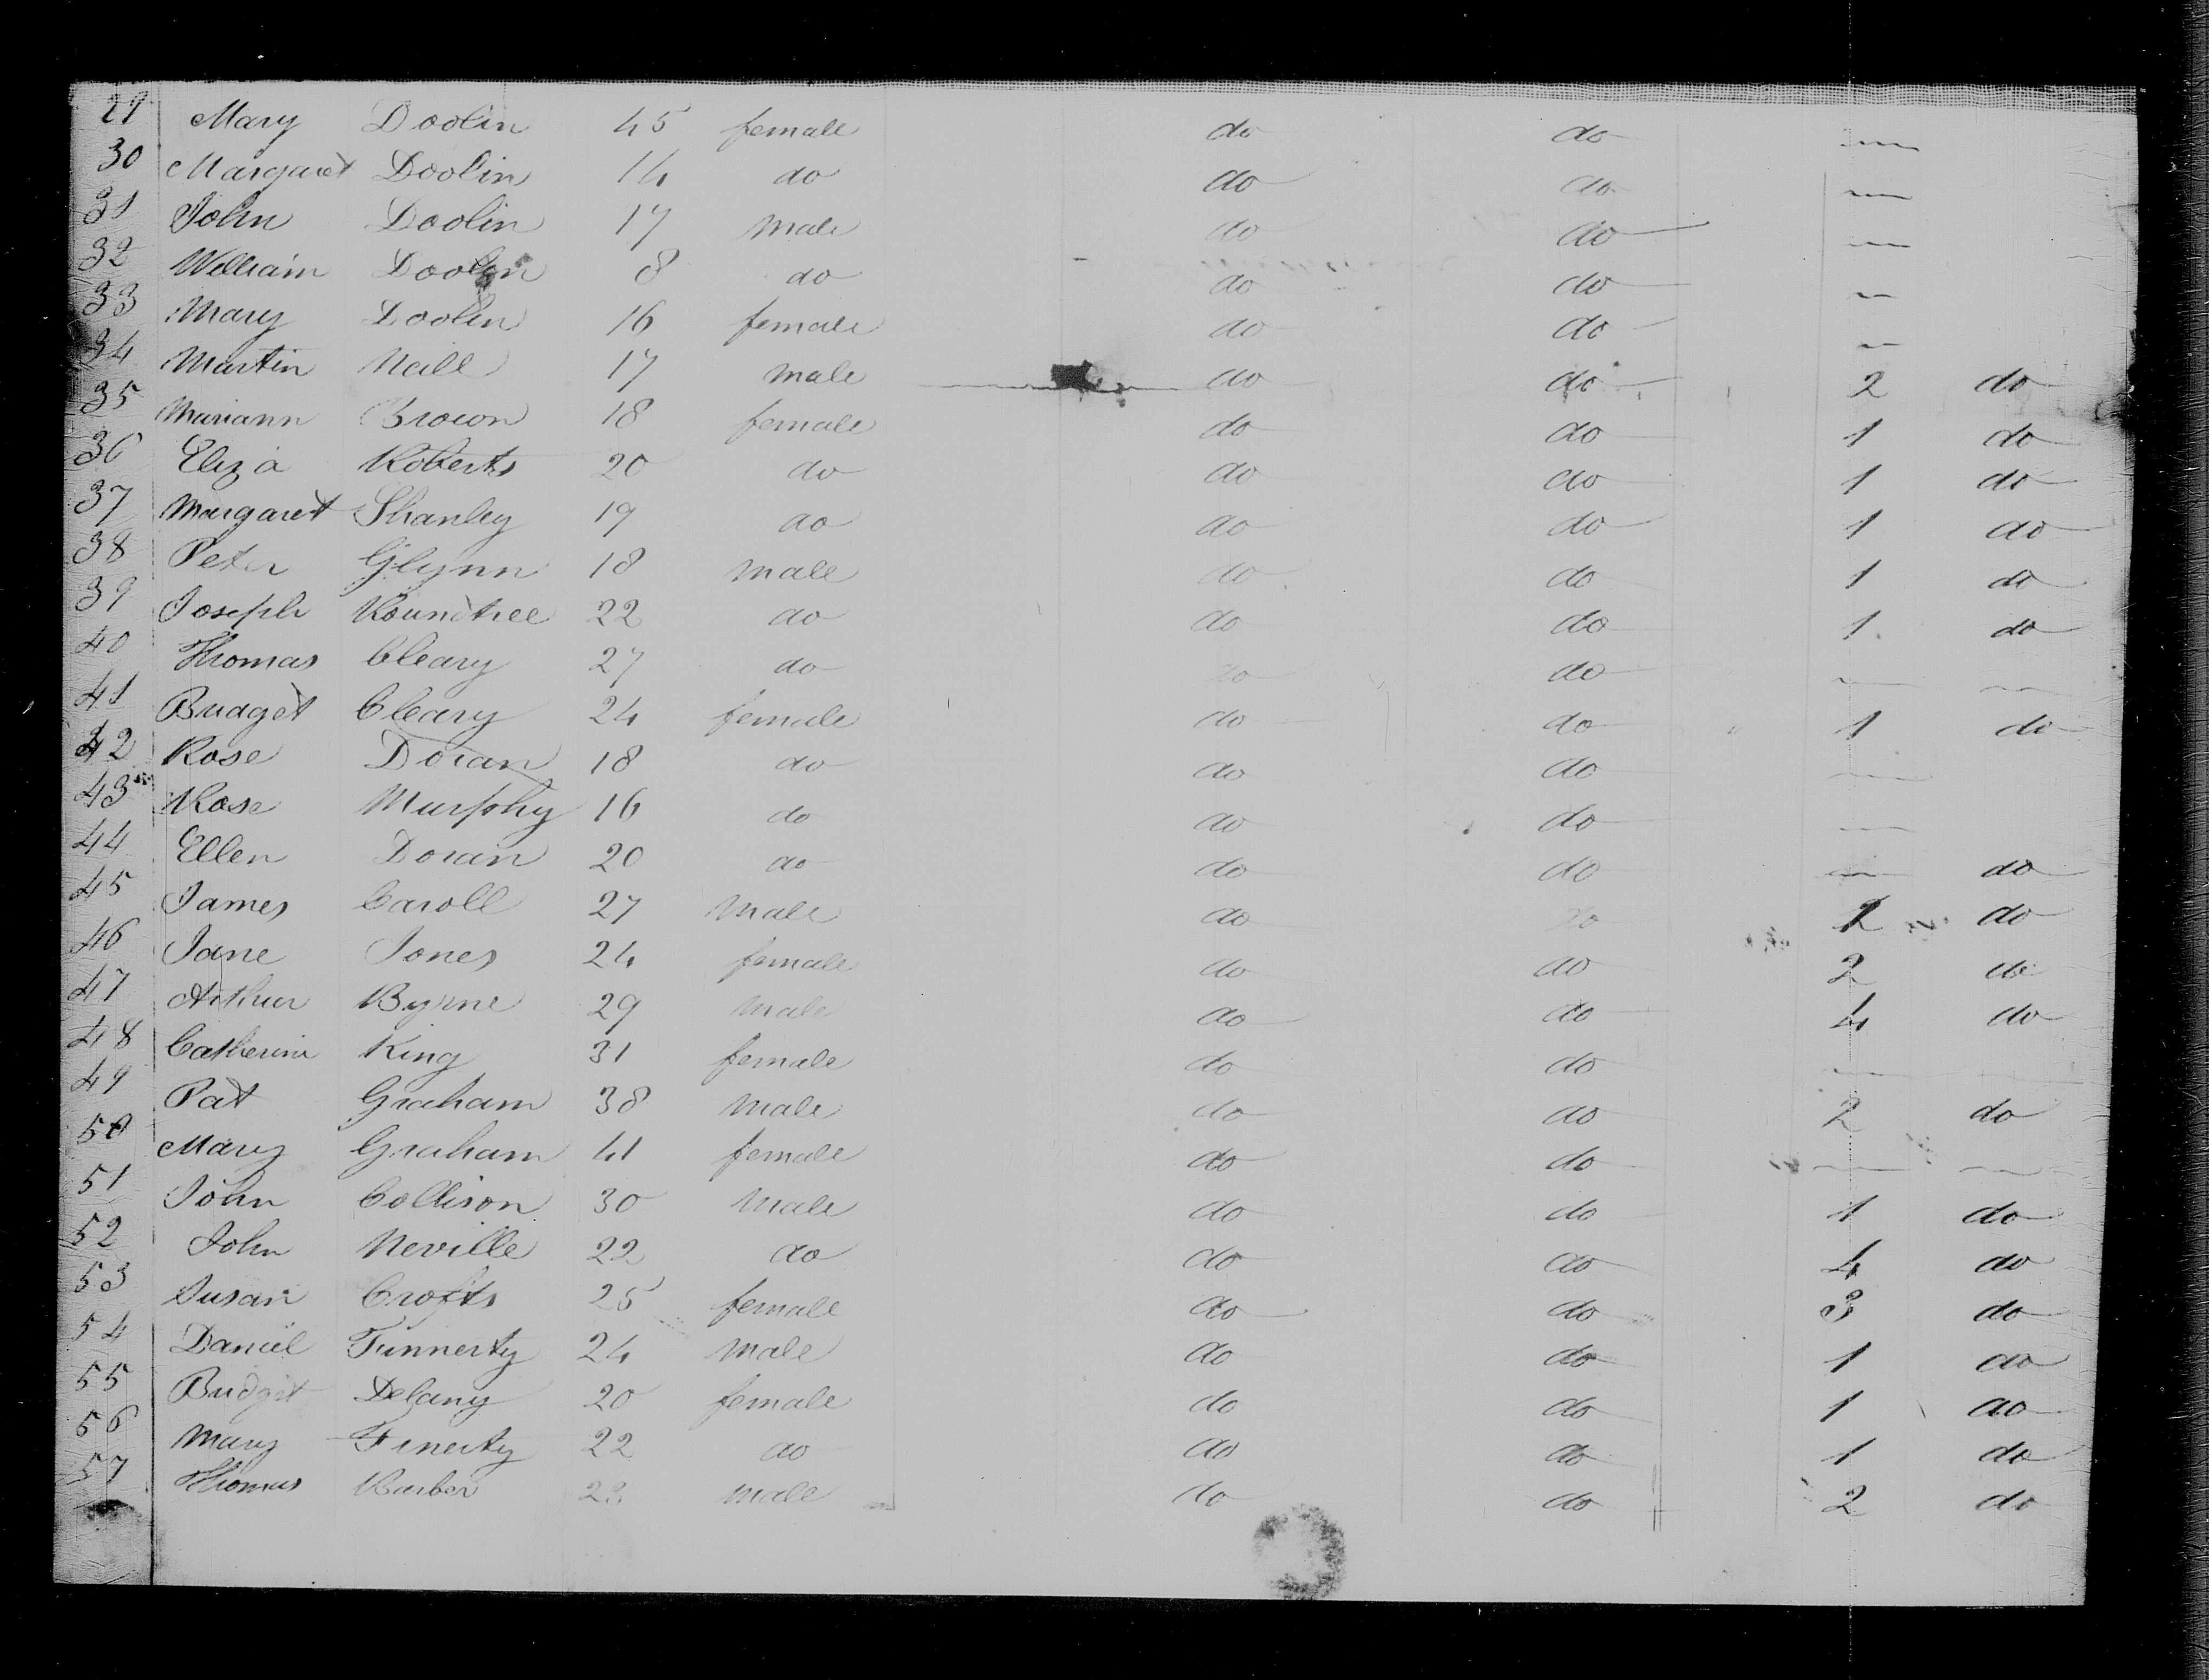 29 Mary Doolin 45 female do do —
30 Margaret Doolin 14 do do do —
31 John Doolin 17 male do do —
32 William Doolin 8 do do do —
33 Mary Doolin 16 female do do —
34 Martin Neill 17 male do do 2 do
35 Mariann Brown 18 female do do 1 do
36 Eliza Roberts 20 do do do 1 do
37 Margaret Shanley 19 do do do 1 do
38 Peter Glynn 18 male do do 1 do
39 Joseph Roundtree 22 do do do 1 do
40 Thomas Cleary 27 do do do — —
41 Bridget Cleary 24 female do do 1 do
42 Rose Doran 18 do do do —
43 Rose Murphy 16 do do do —
44 Ellen Doran 20 do do do — do
45 James Caroll 27 male do do do
46 Jane Jones 24 female do do 2 do
47 Arthur Byrne 29 male do do 4 do
48 Catherine King 31 female do do —
49 Pat Graham 38 male do do 2 do
50 Mary Graham 41 female do do — —
51 John Collison 30 male do do 1 do
52 John Neville 22 do do do 4 do
53 Susan Crofts 25 female do do 3 do
54 Daniel Finnerty 24 male do do 1 do
55 Bridget Delany 20 female do do 1 do
56 Mary Finerty 22 do do do 1 do
57 Thomas Barber 23 male do do 2 do